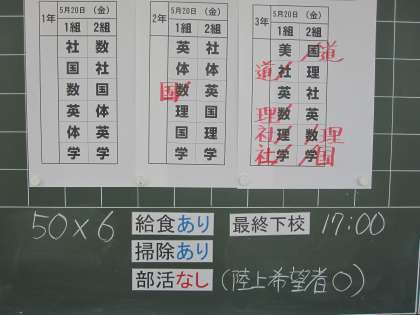 1年 5月20日 (金)
1組 2組
社 数
国 社
数 国
英 体
体 英
学 学
2年 5月20日 (金)
1組 2組
英 社
体 体
国 数 英
理 国
国 理
学 学
3年 5月20日 (金)
1組 2組
美 国 道
道 社 理
英 社
理 数 英
社 理 数 理
社 学 学 国
50×6 給食あり 最終下校 17:00
掃除あり
部活なし (陸上希望者○)